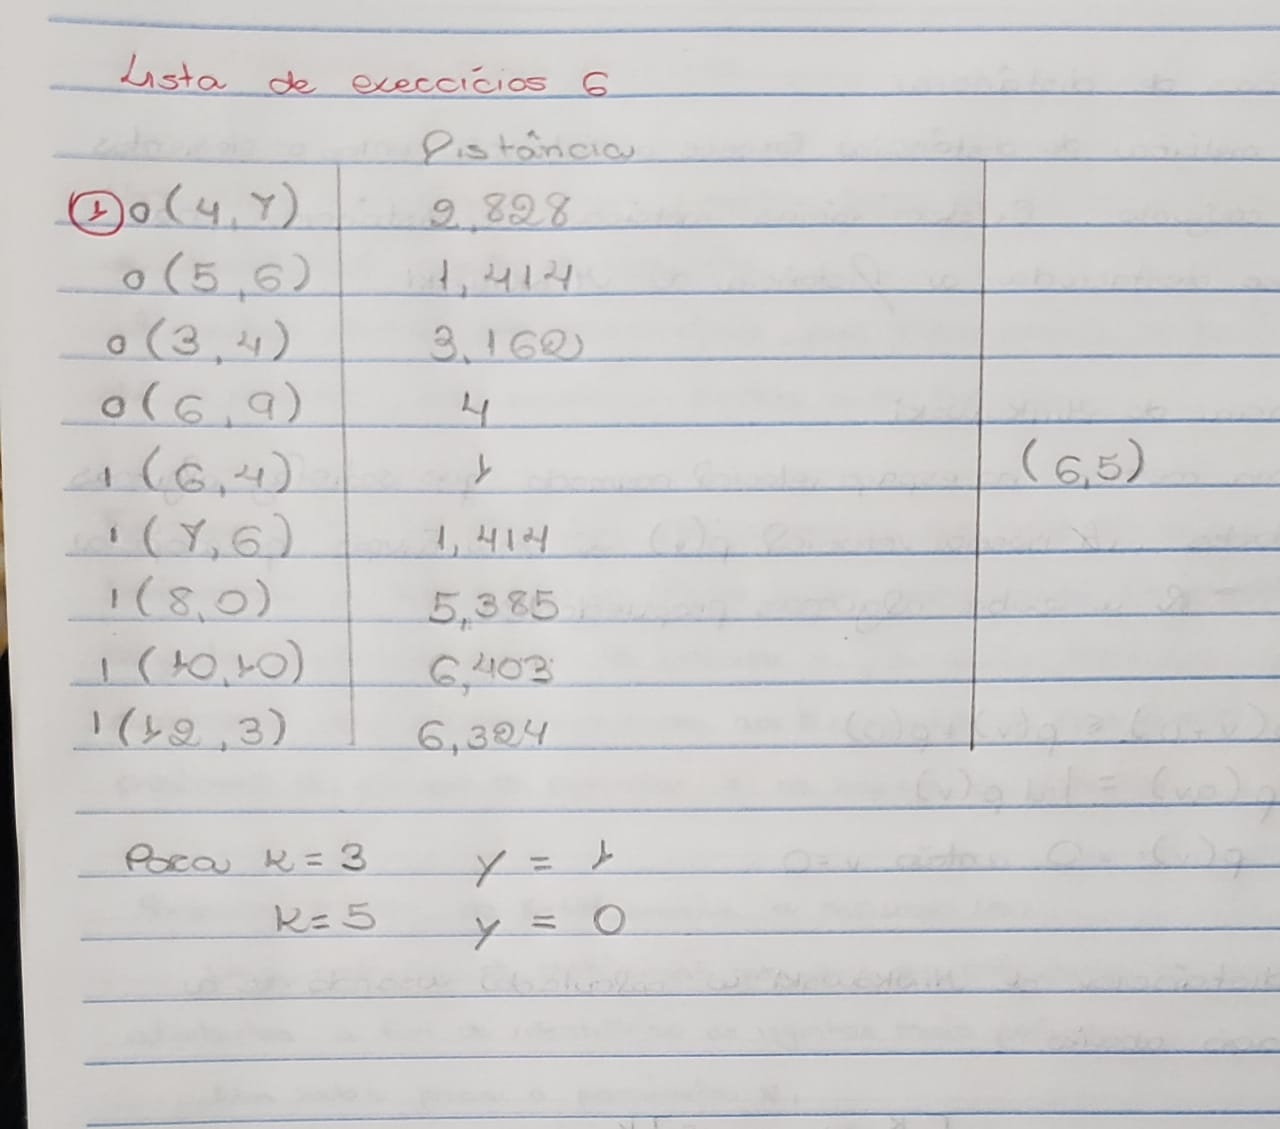 Lista de execcícios 6
Distância
1 0(4,7) 2,828
0(5,6) 1,414
0(3,4) 3,162
0(6,9) 4
1(6,4) 1 (6,5)
1(7,6) 1,414
1(8,0) 5,385
1(10,10) 6,403
1(12,3) 6,324
Para k=3 y = 1
k=5 y = 0